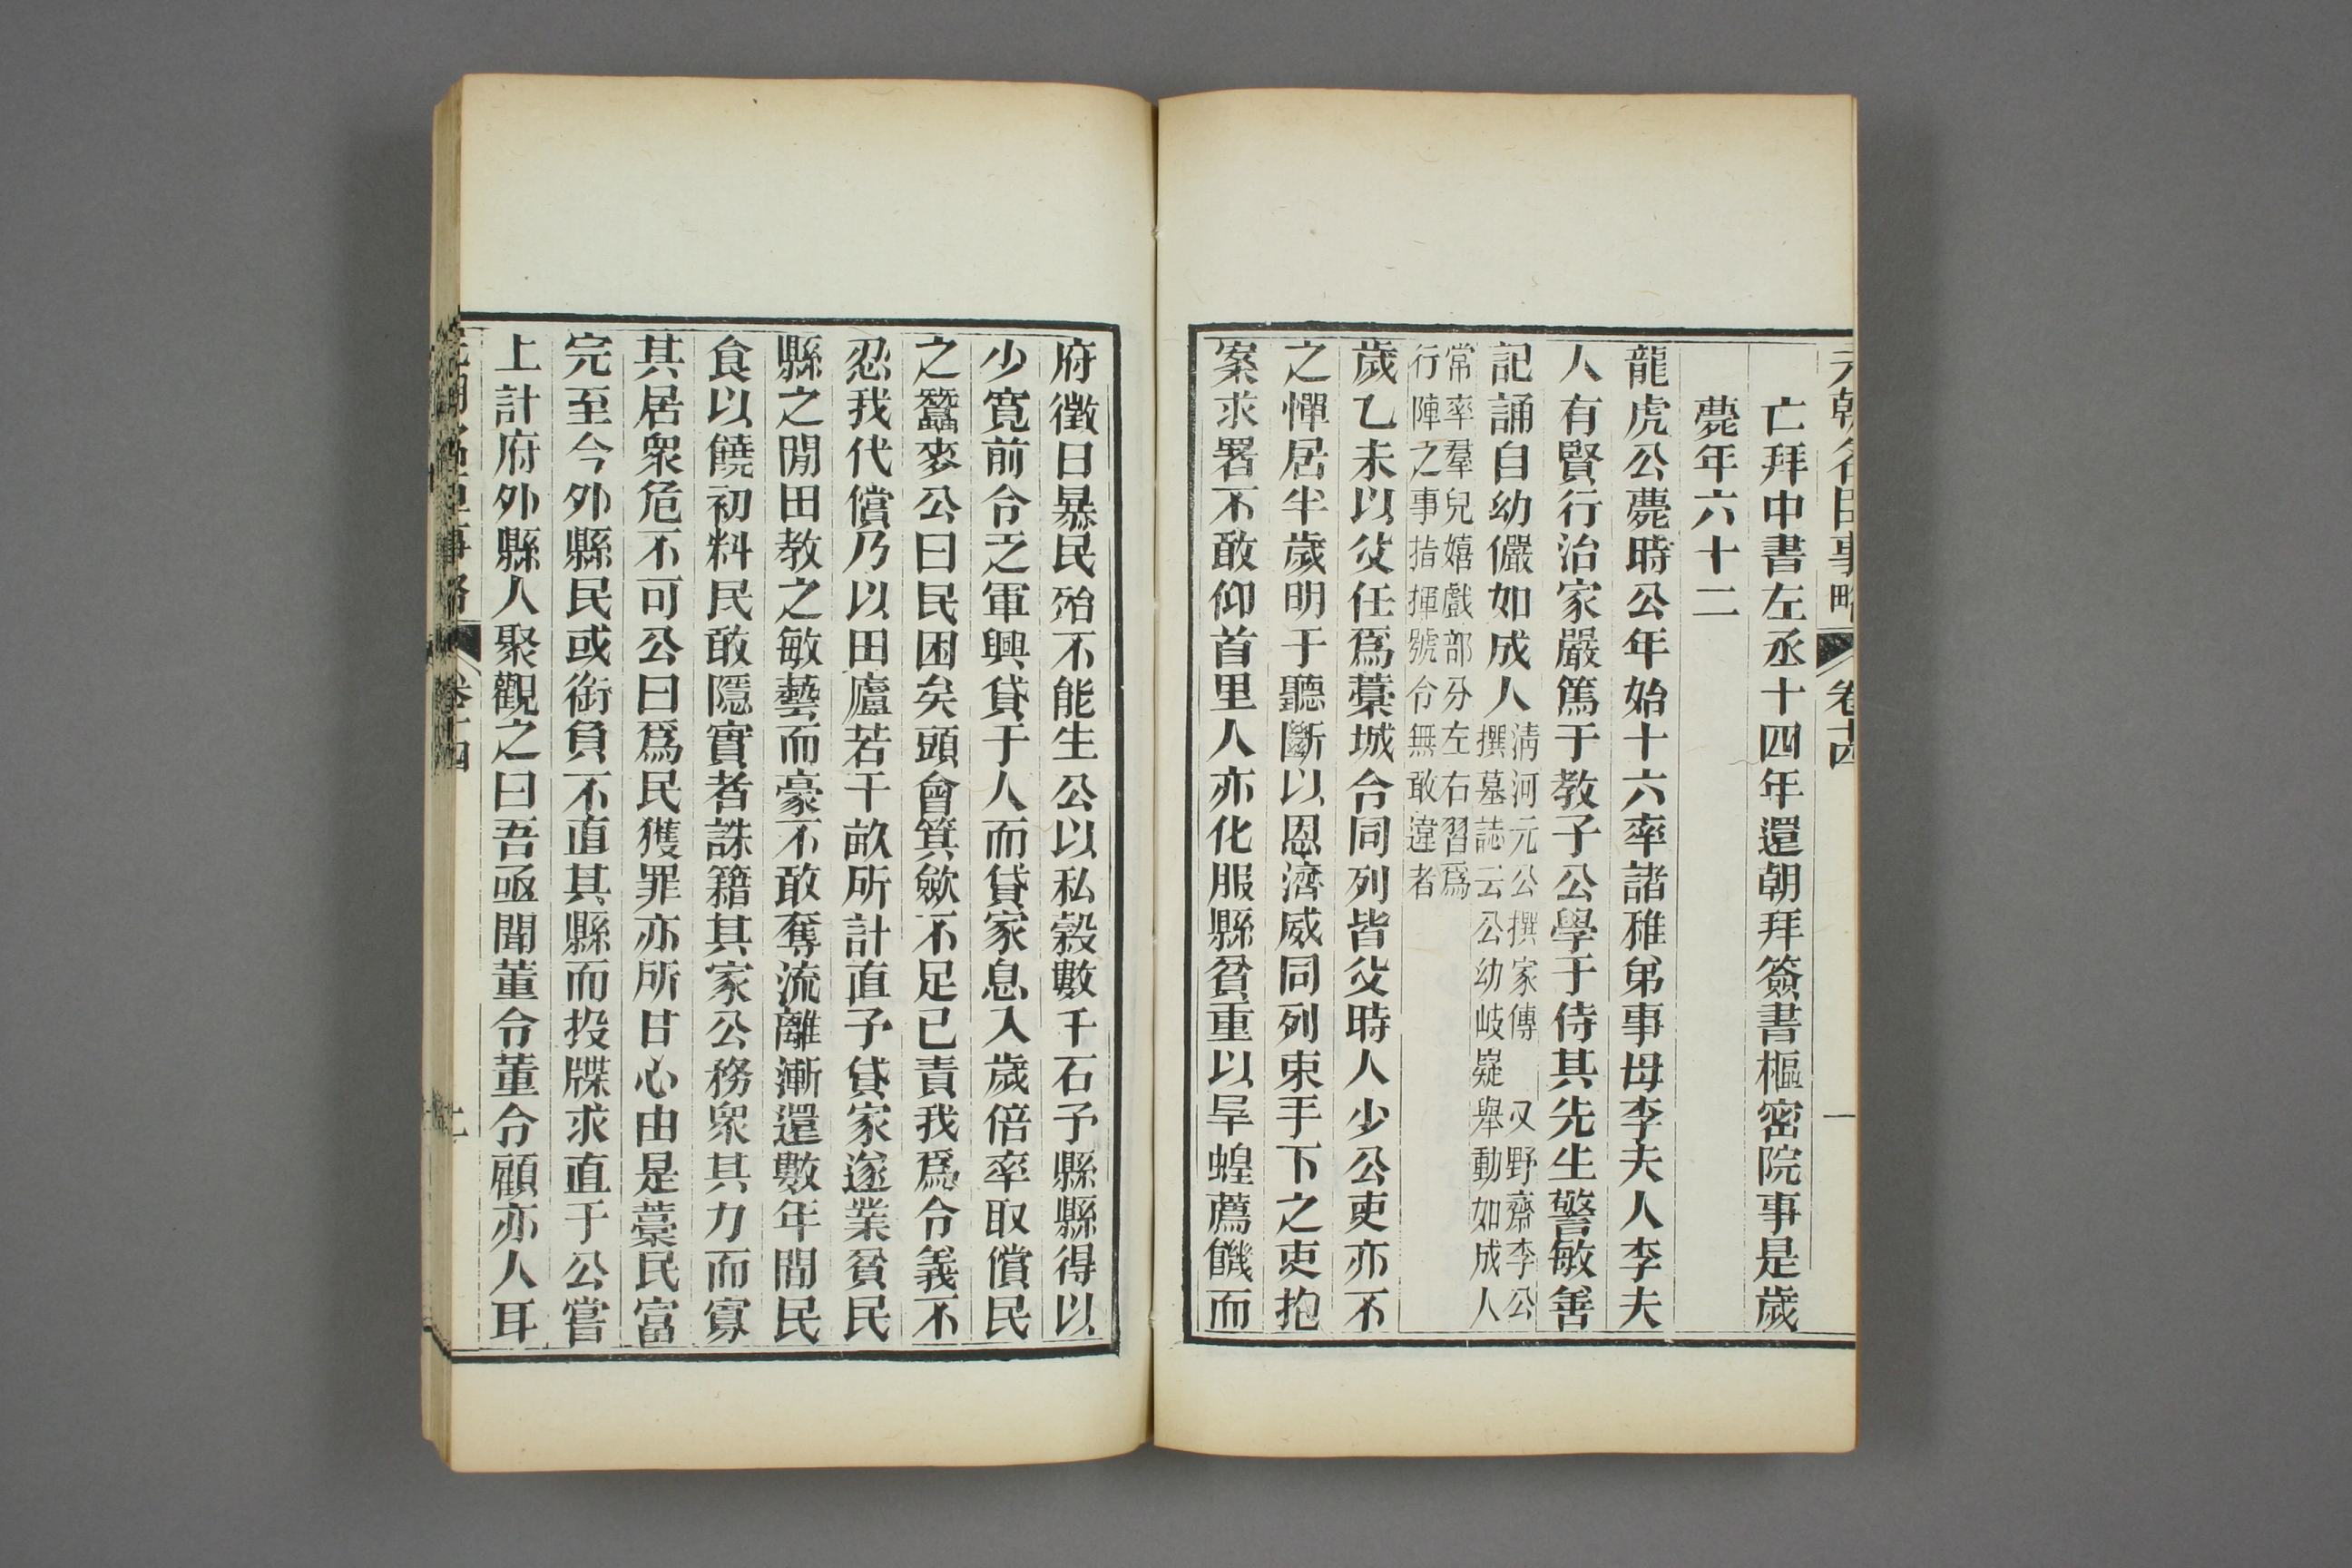 元朝名臣事略 卷十四 一
亡拜中書左丞十四年還朝拜簽書樞密院事是歲
薨年六十二
龍虎公薨時公年始十六率諸稚弟事母李夫人李夫
人有賢行治家嚴篤于教子公學于侍其先生警敏善
記誦自幼儼如成人清河元公撰家傳 又野齋李公
撰墓誌云公幼岐嶷舉動如成人
常率羣兒嬉戲部分左右習爲
行陣之事指揮號令無敢違者
歲乙未以父任爲藁城令同列皆父時人少公吏亦不
之憚居半歲明于聽斷以恩濟威同列束手下之吏抱
案求署不敢仰首里人亦化服縣貧重以旱蝗薦饑而
府徵日暴民殆不能生公以私穀數千石予縣縣得以
少寬前令之軍興貸于人而貸家息入歲倍率取償民
之蠶麥公曰民困矣頭會箕歛不足已責我爲令義不
忍我代償乃以田廬若干畝所計直予貸家遂業貧民
縣之閒田教之敏藝而豪不敢奪流離漸還數年間民
食以饒初料民敢隱實者誅籍其家公務衆其力而寡
其居衆危不可公曰爲民獲罪亦所甘心由是藁民富
完至今外縣民或銜負不直其縣而投牒求直于公嘗
上計府外縣人聚觀之曰吾亟聞董令董令顧亦人耳